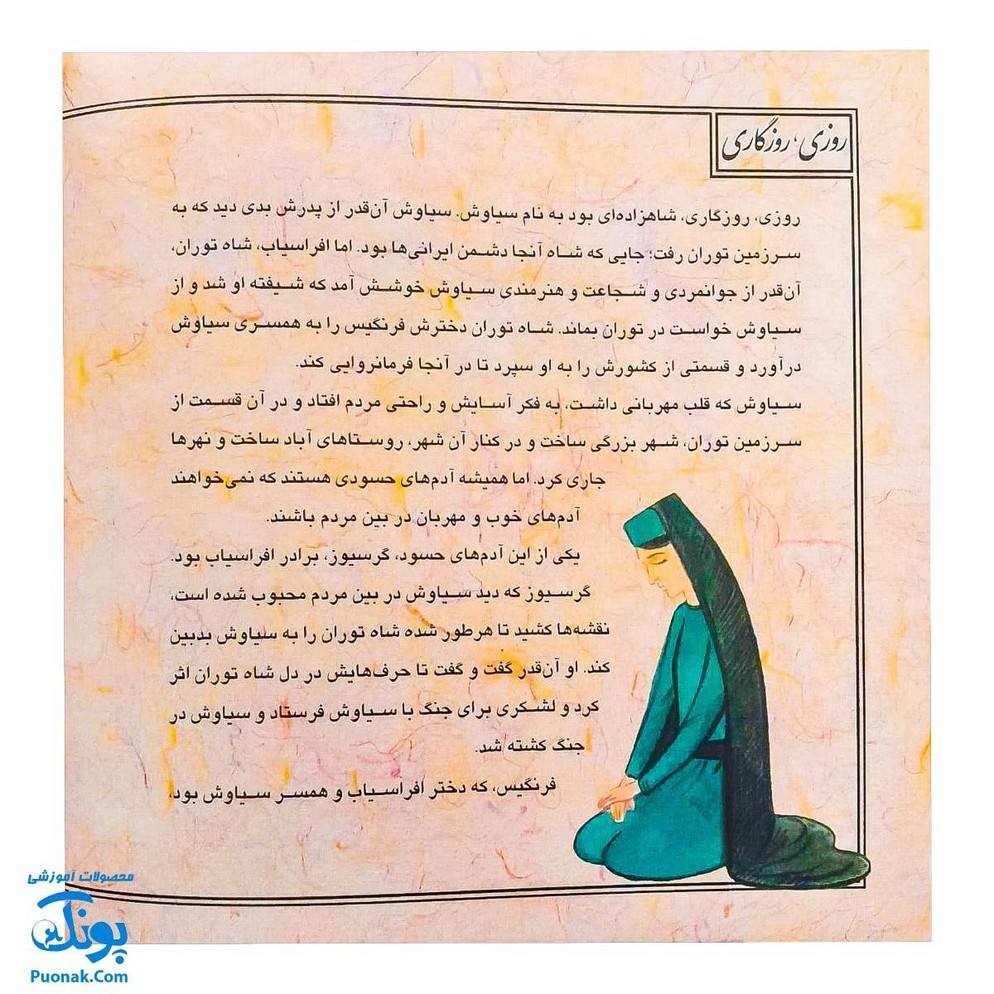 روزی، روزگاری
روزی، روزگاری، شاهزاده‌ای بود به نام سیاوش. سیاوش آن‌قدر از پدرش بدی دید که به
سرزمین توران رفت؛ جایی که شاه آنجا دشمن ایرانی‌ها بود. اما افراسیاب، شاه توران،
آن‌قدر از جوانمردی و شجاعت و هنرمندی سیاوش خوشش آمد که شیفته او شد و از
سیاوش خواست در توران بماند. شاه توران دخترش فرنگیس را به همسری سیاوش
درآورد و قسمتی از کشورش را به او سپرد تا در آنجا فرمانروایی کند.
سیاوش که قلب مهربانی داشت، به فکر آسایش و راحتی مردم افتاد و در آن قسمت از
سرزمین توران، شهر بزرگی ساخت و در کنار آن شهر، روستاهای آباد ساخت و نهرها
جاری کرد. اما همیشه آدم‌های حسودی هستند که نمی‌خواهند
آدم‌های خوب و مهربان در بین مردم باشند.
یکی از این آدم‌های حسود، گرسیوز، برادر افراسیاب بود.
گرسیوز که دید سیاوش در بین مردم محبوب شده است،
نقشه‌ها کشید تا هرطور شده شاه توران را به سیاوش بدبین
کند. او آن‌قدر گفت و گفت تا حرف‌هایش در دل شاه توران اثر
کرد و لشکری برای جنگ با سیاوش فرستاد و سیاوش در
جنگ کشته شد.
فرنگیس، که دختر افراسیاب و همسر سیاوش بود،
محصولات آموزشی
پونک
Puonak.Com